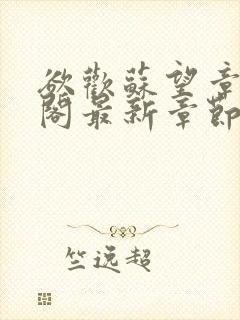 欲歡蘇望章
閣最新章節
竺逸超